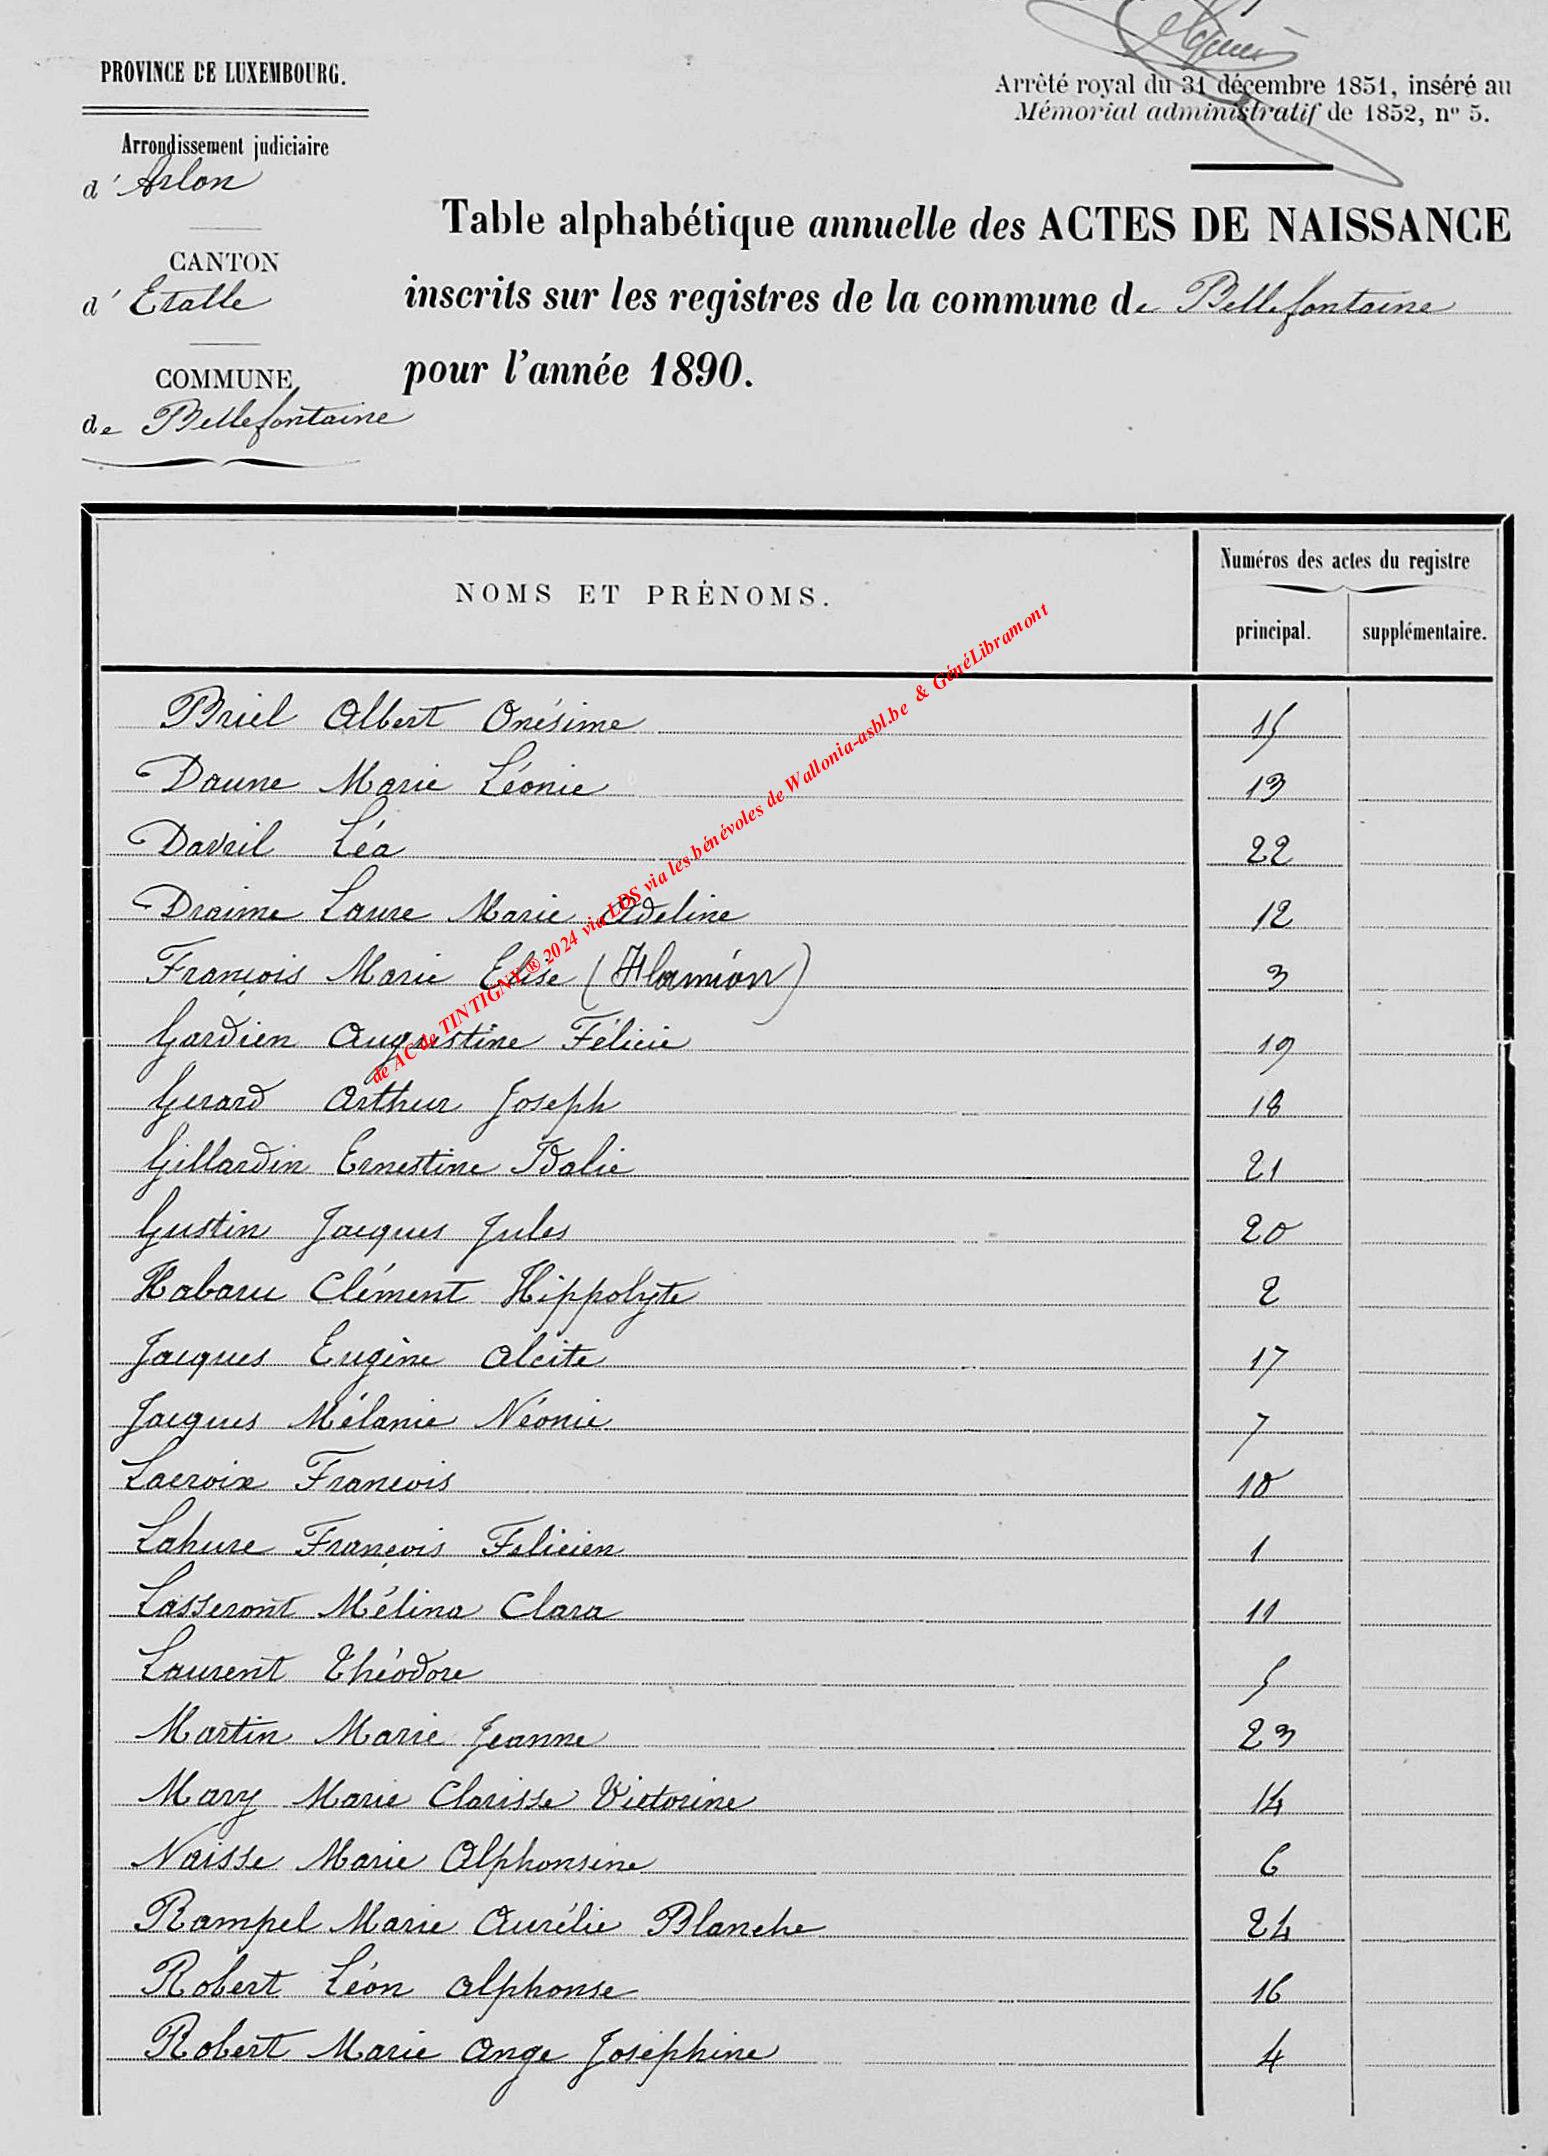 PROVINCE DE LUXEMBOURG.
Arrondissement judiciaire
d' Arlon
CANTON
d' Etalle
COMMUNE
de Bellefontaine
Arrêté royal du 31 décembre 1851, inséré au
Mémorial administratif de 1852, n° 5.
Table alphabétique annuelle des ACTES DE NAISSANCE
inscrits sur les registres de la commune de Bellefontaine
pour l'année 1890.
NOMS ET PRÉNOMS.
Numéros des actes du registre
principal. supplémentaire.
Briel Albert Onésime 15
Daune Marie Léonie 13
Davril Léa 22
Draime Laure Marie Adeline 12
François Marie Elise (Hamion) 3
Gardien Augustine Félicie 19
Gerard Arthur Joseph 18
Gillardin Ernestine Idalie 21
Gustin Jacques Jules 20
Habaru Clément Hippolyte 2
Jacques Eugène Alcite 17
Jacques Mélanie Néonie 7
Lacroix Francois 10
Lahure François Felicien 1
Lasseront Mélina Clara 11
Laurent Théodore 5
Martin Marie Jeanne 23
Mary Marie Clarisse Victorine 14
Naisse Marie Alphonsine 6
Rampel Marie Aurélie Blanche 24
Robert Léon Alphonse 16
Robert Marie Ange Joséphine 4
de AC de TINTIGNY ® 2024 via LDS via les bénévoles de Wallonia-asbl.be & GénéLibramont